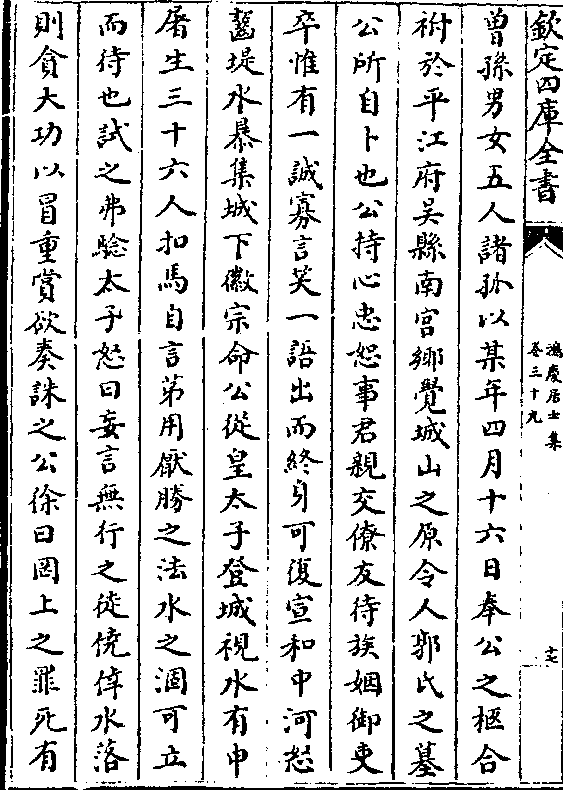 欽定四庫全書
鴻慶居士集
卷三十九
十七
曾孫男女五人諸孤以某年四月十六日奉公之柩合
祔於平江府吳縣南宫鄉覺城山之原令人郭氏之墓
公所自卜也公持心忠恕事君親交僚友待族姻御吏
卒惟有一誠寡言笑一語出而終身可復宣和中河怒
齧堤水暴集城下徽宗命公從皇太子登城視水有中
屠生三十六人扣馬自言苐用厭勝之法水之涸可立
而待也試之弗驗太子怒曰妄言無行之徒僥倖水落
則貪大功以冒重賞欲奏誅之公徐曰罔上之罪死有